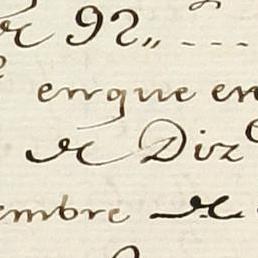 de 92,, - - -
enque en
de Diz
embre de